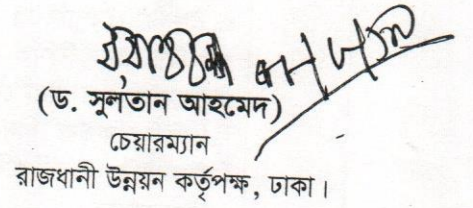 (ড. সুলতান আহমেদ)
চেয়ারম্যান
রাজধানী উন্নয়ন কর্তৃপক্ষ, ঢাকা।